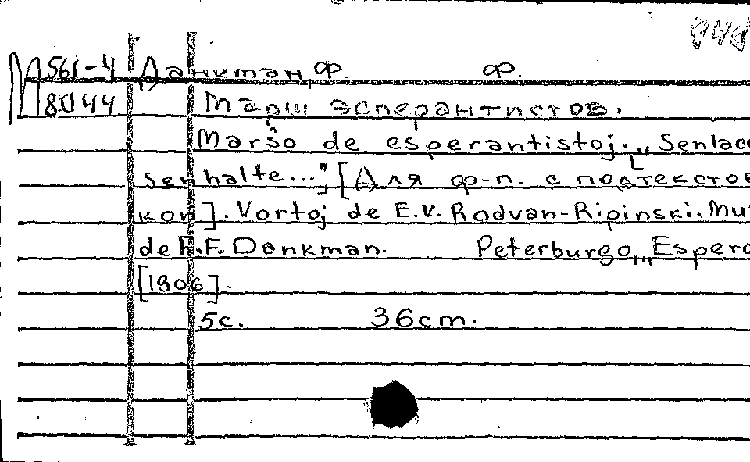 М 561-4 Данкман, Ф. Ф.
8044 Марш эсперантистов.
Marŝo de esperantistoj. „Senlace
senhalte...", [Для ф-п. с подтекстов
кой]. Vortoj de E.V. Radvan-Ripinski. Mu
de F.F. Dankman. Peterburgo, „Espero
[1906].
5с. 36cm.